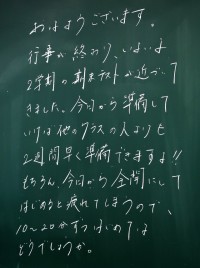 おはようございます。
行事が終わり、いよいよ
2学期の期末テストが近づいて
きました。今日から準備して
いけば他のクラスの人よりも
2週間早く準備できますよ!!
もちろん、今日から全開にして
はじめると疲れてしまうので、
10〜20分ずつはじめては
どうでしょうか。